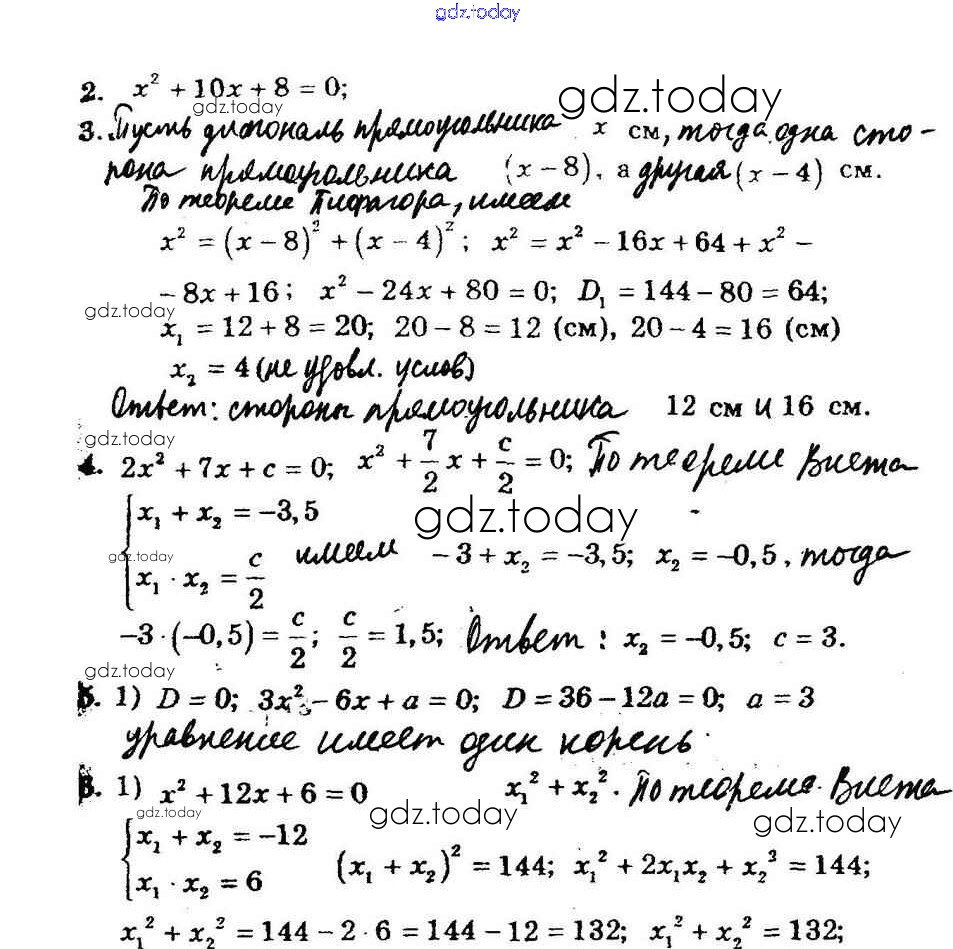 gdz.today
2. x² + 10x + 8 = 0;
gdz.today
gdz.today
3. Пусть диагональ прямоугольника x см, тогда одна сто-
рона прямоугольника (x − 8), а другая (x − 4) см.
По теореме Пифагора, имеем
x² = (x − 8)² + (x − 4)²; x² = x² − 16x + 64 + x² −
− 8x + 16; x² − 24x + 80 = 0; D₁ = 144 − 80 = 64;
gdz.today
x₁ = 12 + 8 = 20; 20 − 8 = 12 (см), 20 − 4 = 16 (см)
x₂ = 4 (не удовл. услов)
Ответ: стороны прямоугольника 12 см и 16 см.
gdz.today
4. 2x² + 7x + c = 0; x² + 7/2 x + c/2 = 0; По теореме Виета
{x₁ + x₂ = −3,5
gdz.today
gdz.today
{x₁ · x₂ = c/2 имеем −3 + x₂ = −3,5; x₂ = −0,5, тогда
−3 · (−0,5) = c/2; c/2 = 1,5; Ответ: x₂ = −0,5; c = 3.
gdz.today
5. 1) D = 0; 3x² − 6x + a = 0; D = 36 − 12a = 0; a = 3
уравнение имеет один корень
1) x² + 12x + 6 = 0 x₁² + x₂². По теореме Виета
gdz.today
gdz.today
gdz.today
{x₁ + x₂ = −12
{x₁ · x₂ = 6 (x₁ + x₂)² = 144; x₁² + 2x₁x₂ + x₂³ = 144;
x₁² + x₂² = 144 − 2 · 6 = 144 − 12 = 132; x₁² + x₂² = 132;